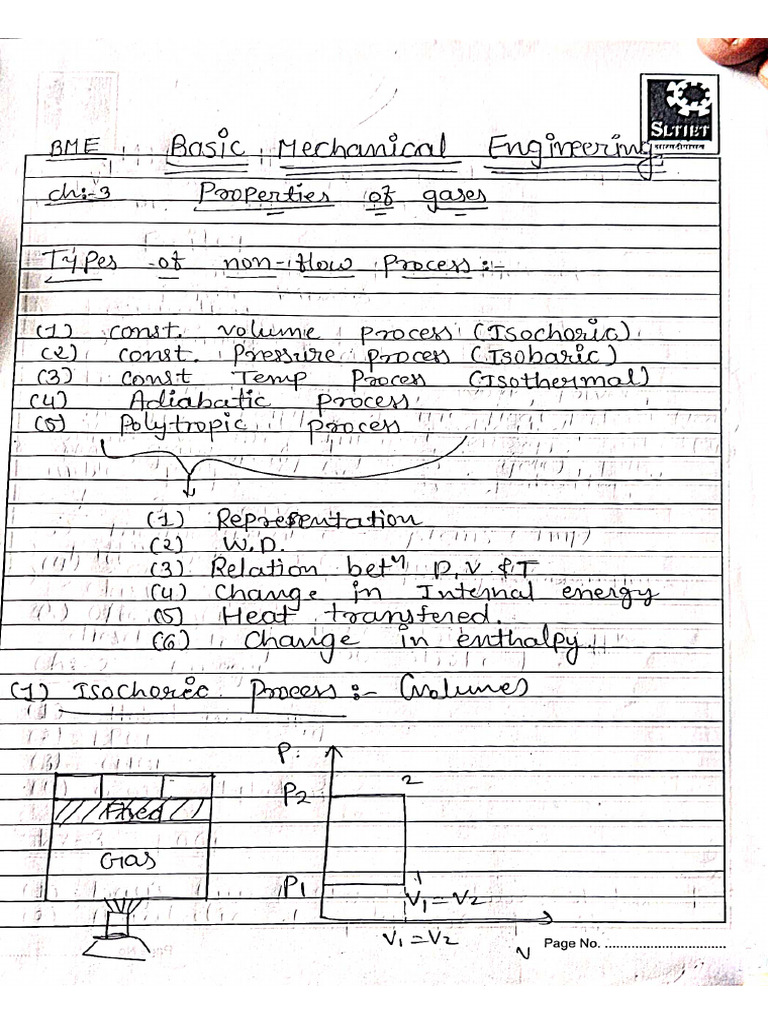 SLTIET
BME Basic Mechanical Engineering
ch:-3 Properties of gases
Types of non-flow process:-
(1) const. volume process (Isochoric)
(2) const. Pressure process (Isobaric)
(3) const Temp Process (Isothermal)
(4) Adiabatic process
(5) Polytropic process
(1) Representation
(2) W.D.
(3) Relation betn P, V & T
(4) Change in Internal energy
(5) Heat transfered.
(6) Change in enthalpy.
(1) Isochoric Process:- (Volume)
P
P2 2
Fixed
Gas
P1 1
V1 = V2
V1 = V2
V
Page No. ..............................